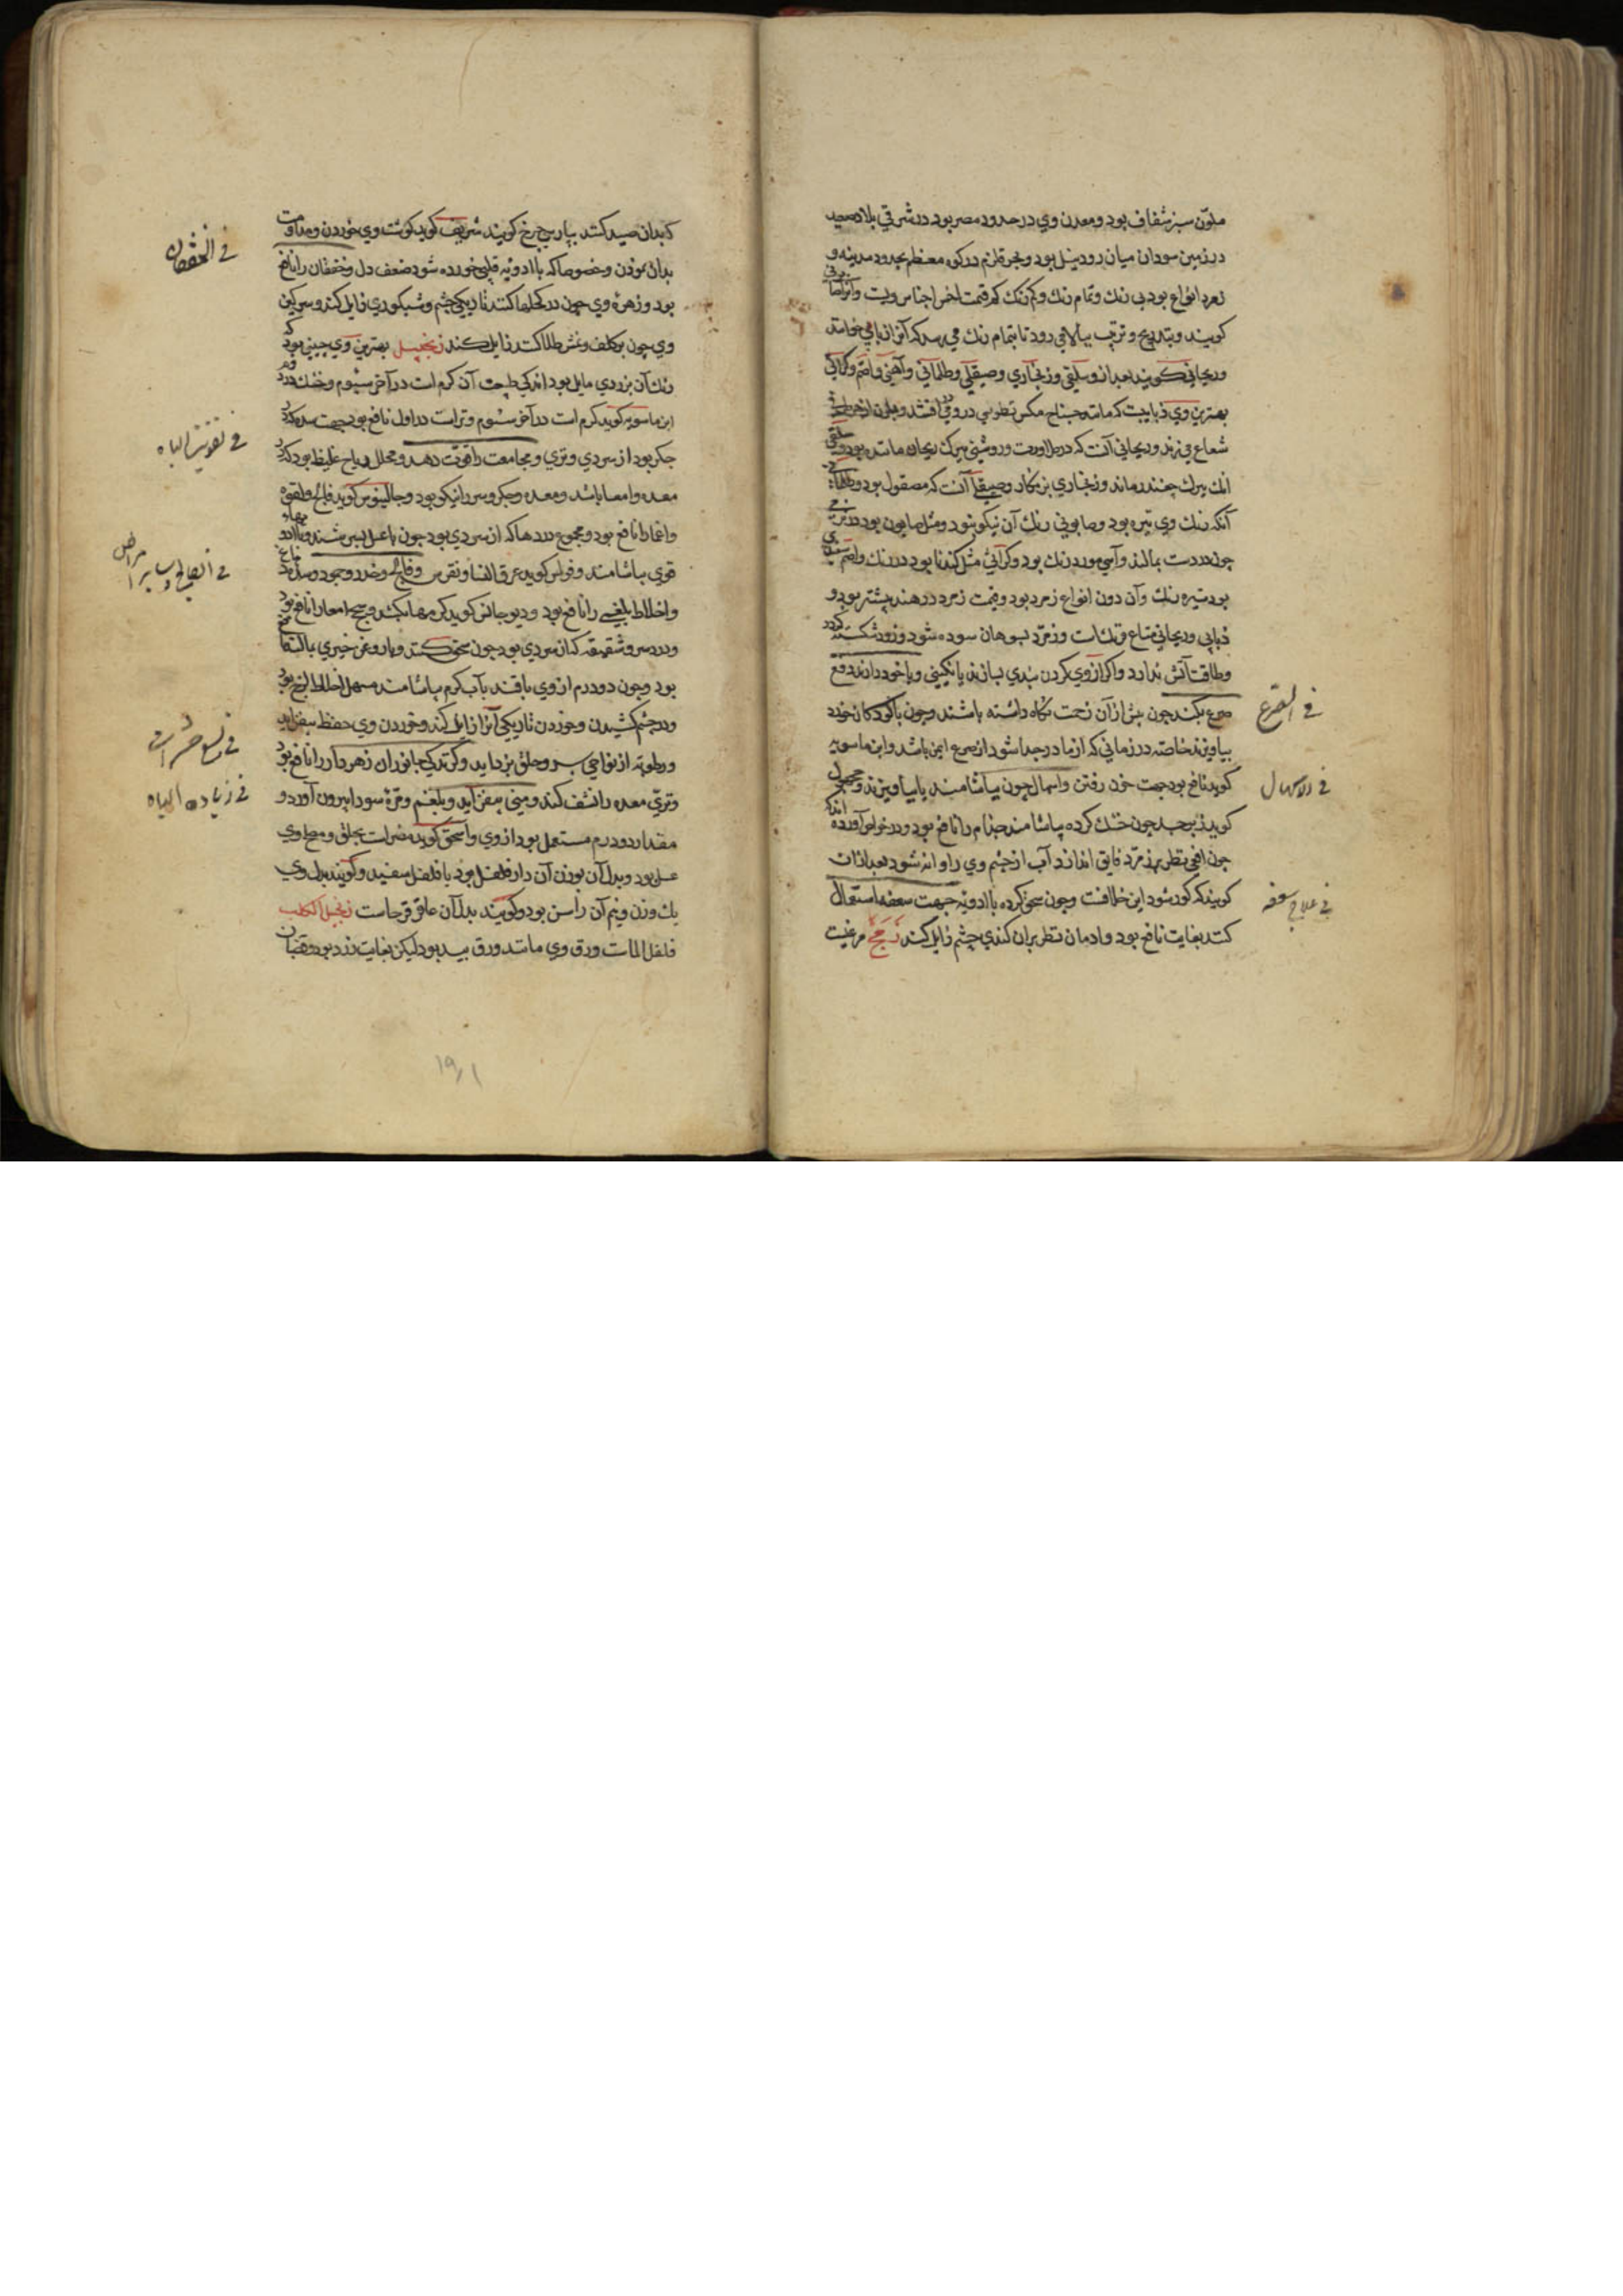 ملون سبز شفاف بود و معدن وی در حدود مصر بود در شرقی بلاد صعید
در زمین سودان میان رود نیل بود و بحر قلزم در کوه معظم بحدود مدینه و
زمرد انواع بود بی رنك و تمام رنك و کم رنك کم قیمت اخس اجناس ویست و آنرا
کویند و بتدریج و ترتیب ببالا می رود تا بتمام رنك می رسد که آنرا ذبابی خوانند
و ریحانی کویند بعد از و سلقی و زنجاری و صیقلی و ظلمانی و آهنی و اصم و کراثی
بهترین وی ذبابیست که مانند جناح مکس
شعاع می زند و ریحانی آنست که در طراوت و روشنی ببرك ریحان مانند بود و سلقی
انك ببرك چغندر ماند و زنجاری بزنکار و صیقلی آنست که مصقول بود و ظلمانی
آنکه رنك وی تیره بود و صابونی رنك آن نیکو نبود و مثل صابون بود
چون در دست بمالند و آسی مورد رنك بود و کراثی مثل کندنا بود در رنك و اصم
بود تیره رنك و آن دون انواع زمرد بود و قیمت زمرد در هند بیشتر بود و
ذبابی و ریحانی متاع فرنك است و زمرد بسوهان سوده شود و زود شکسته کردد
و طاقت آتش ندارد و اکر از وی کردن بندی بسازند یا نکینی و با خود دارند دفع
صرع بکند چون پیش از آن زحمت نکاه داشته باشند و چون با کودکان خورد
بیاویزند خاصه در زمانی که از مادر جدا شود از صرع ایمن باشد و ابن ماسویه
کوید نافع بود جهت خون رفتن و اسهال چون بیاشامند یا بیاویزند و
کوید زبرجد چون خشك کرده بیاشامند جذام را نافع بود و در خواص آورده اند که
چون افعی نظر بر زمرد فایق اندازد آب از چشم وی روانه شود بعد از آن
کویند که کور شود این خلافست و چون سحق کرده با ادویه جهت سعفه استعمال
کنند بغایت نافع بود و ادمان نظر بران کندی چشم زایل کند زمج مرغیست
فی الصرع
فی الاسهال
فی علاج سعفه
که بدان صید کنند بپارسی چرخ کویند شریف کوید کوشت وی خوردن و مداومت
بدان نمودن و خصوصا که با ادویه قلبی خورده شود ضعف دل و خفقان را نافع
بود و زهرهٔ وی چون در کحلها کنند تاریکی چشم و شبکوری زایل کند و سرکین
وی چون بر کلف و نمش طلا کنند زایل کند زنجبیل بهترین وی چینی بود که
رنك آن بزردی مایل بود اندکی طبیعت آن کرم است در آخر سیوم و خشك در دوم
ابن ماسویه کوید کرم است در آخر سیوم و ترست در اول نافع بود جهت سده که در
جکر بود از سردی و تری و مجامعت را قوت دهد و محلل ریاح غلیظ بود که در
معده و امعا باشد و معده و جکر و سر را نیکو بود و جالینوس کوید فالج و لقوه
را نافع بود و مجموع دردها که از سردی بود چون با عسل بسرشند و با ادویه
قوی بیاشامند و فولس کوید عرق النسا و نقرس و فالج و خدر
و اخلاط بلغمی را نافع بود و دیوجانس کوید کرمها بکشد
و درد سر و شقیقه که از سردی بود چون سحق کنند و با روغن خیری
بود و چون دو درم از وی با قند بآب کرم بیاشامند مسهل اخلاط لزج بود
و در چشم کشیدن و خوردن تاریکی آنرا زایل کند و خوردن وی حفظ بیفزاید
و رطوبة از نواحی سر و حلق بزداید و کزندکی جانوران زهردار را نافع بود
و تری معده را نشف کند و منی بیفزاید و بلغم و مرهٔ سودا بیرون آورد و
مقدار دو درم مستعمل بود از وی و اسحق کوید مضرات بحلق و مصلح وی
عسل بود و بدل آن بوزن آن دار فلفل بود یا فلفل سفید و کویند بدل وی
یك وزن و نیم آن راسن بود و کویند بدل آن عاقرقرحاست زنجبیل الکلاب
فلفل الماست ورق وی مانند ورق بید بود لیکن بغایت زرد بود و قضبان
فی الخفقان
فی تقویت الباه
فی الفالج و سایر امراض
فی لسع حشرات
فی زیاده الباه
۱۹۱